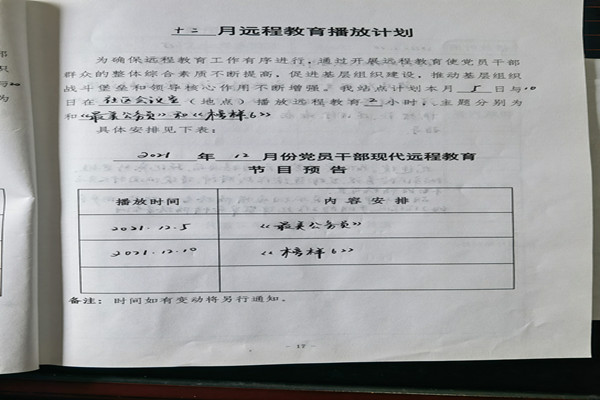 十二 月远程教育播放计划
为确保远程教育工作有序进行，通过开展远程教育使党员干部
群众的整体综合素质不断提高，促进基层组织建设，推动基层组织
战斗堡垒和领导核心作用不断增强。我站点计划本月 5 日与10
日在 社区会议室 （地点）播放远程教育 2 小时，主题分别为
和《最美公务员》和《榜样6》
具体安排见下表：
2021 年 12 月份党员干部现代远程教育
节目预告
播放时间 内容安排
2021.12.5 《最美公务员》
2021.12.10 《榜样6》
备注：时间如有变动将另行通知。
- 17 -